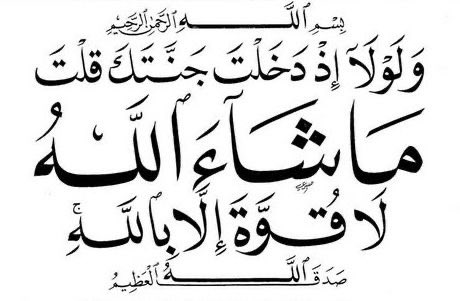 بِسْمِ اللَّهِ الرَّحْمٰنِ الرَّحِيمِ
وَلَوْلَآ إِذْ دَخَلْتَ جَنَّتَكَ قُلْتَ
مَا شَآءَ اللَّهُ
لَا قُوَّةَ إِلَّا بِاللَّهِ ۚ
صَدَقَ اللَّهُ الْعَظِيمُ